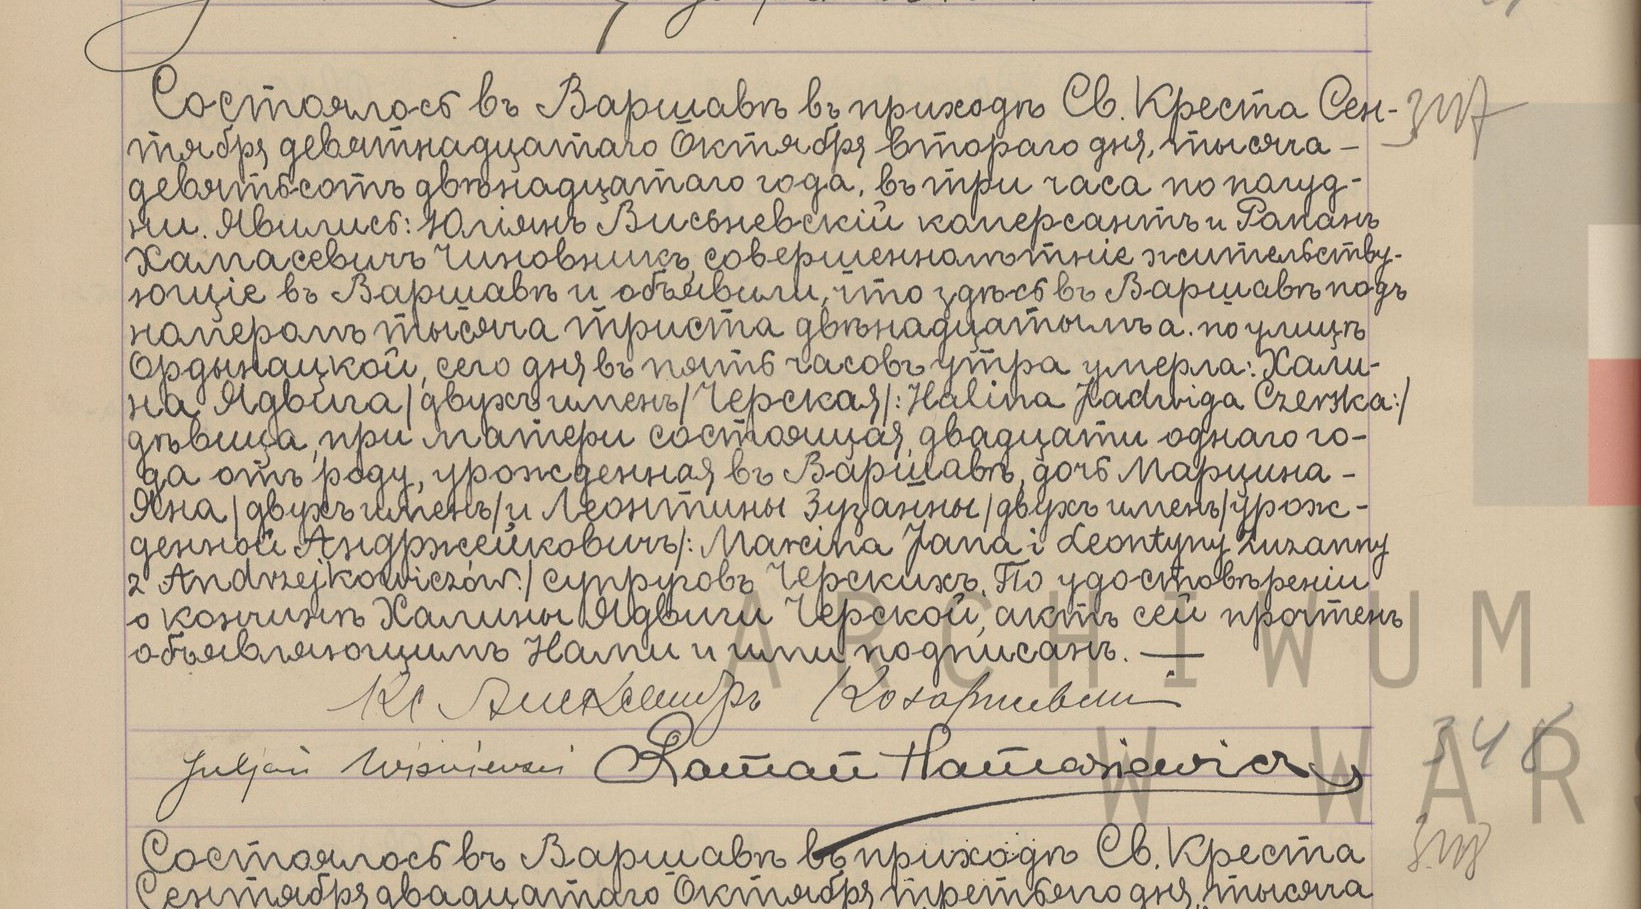 Состоялось въ Варшавѣ въ приходѣ Св. Креста Сен-
тября девятнадцатаго Октября втораго дня, тысяча –
девятьсотъ двѣнадцатаго года, въ три часа по полуд-
ни. Явились: Юліянъ Висьневскій коперсантъ и Романъ
Хамасевичъ Чиновникъ, совершеннолѣтніе жительству-
ющіе въ Варшавѣ и объявили, что здѣсь въ Варшавѣ подъ
номеромъ тысяча триста двѣнадцатымъ а. по улицѣ
Ордынацкой, сего дня въ пять часовъ утра умерла: Хали-
на Ядвига /двухъ именъ/ Черская /: Halina Jadwiga Czerska :/
дѣвица, при матери состоящая, двадцати одного го-
да отъ роду, урожденная въ Варшавѣ, дочь Марцина –
Яна /двухъ именъ/ и Леонтины Зузанны /двухъ именъ/ урож-
денной Андржейковичъ /: Marcina Jana i Leontyny Zuzanny
z Andrzejkowiczów :/ супруговъ Черскихъ. По удостовѣреніи
о кончинѣ Халины Ядвиги Черской, актъ сей прочтенъ
объявляющимъ Нами и ими подписанъ. —
Кс Александръ
Juljan Wiśniewski Roman Hamasiewicz
348
Состоялось въ Варшавѣ въ приходѣ Св. Креста
Сентября двадцатаго Октября третьяго дня, тысяча
ARCHIWUM
W WARS